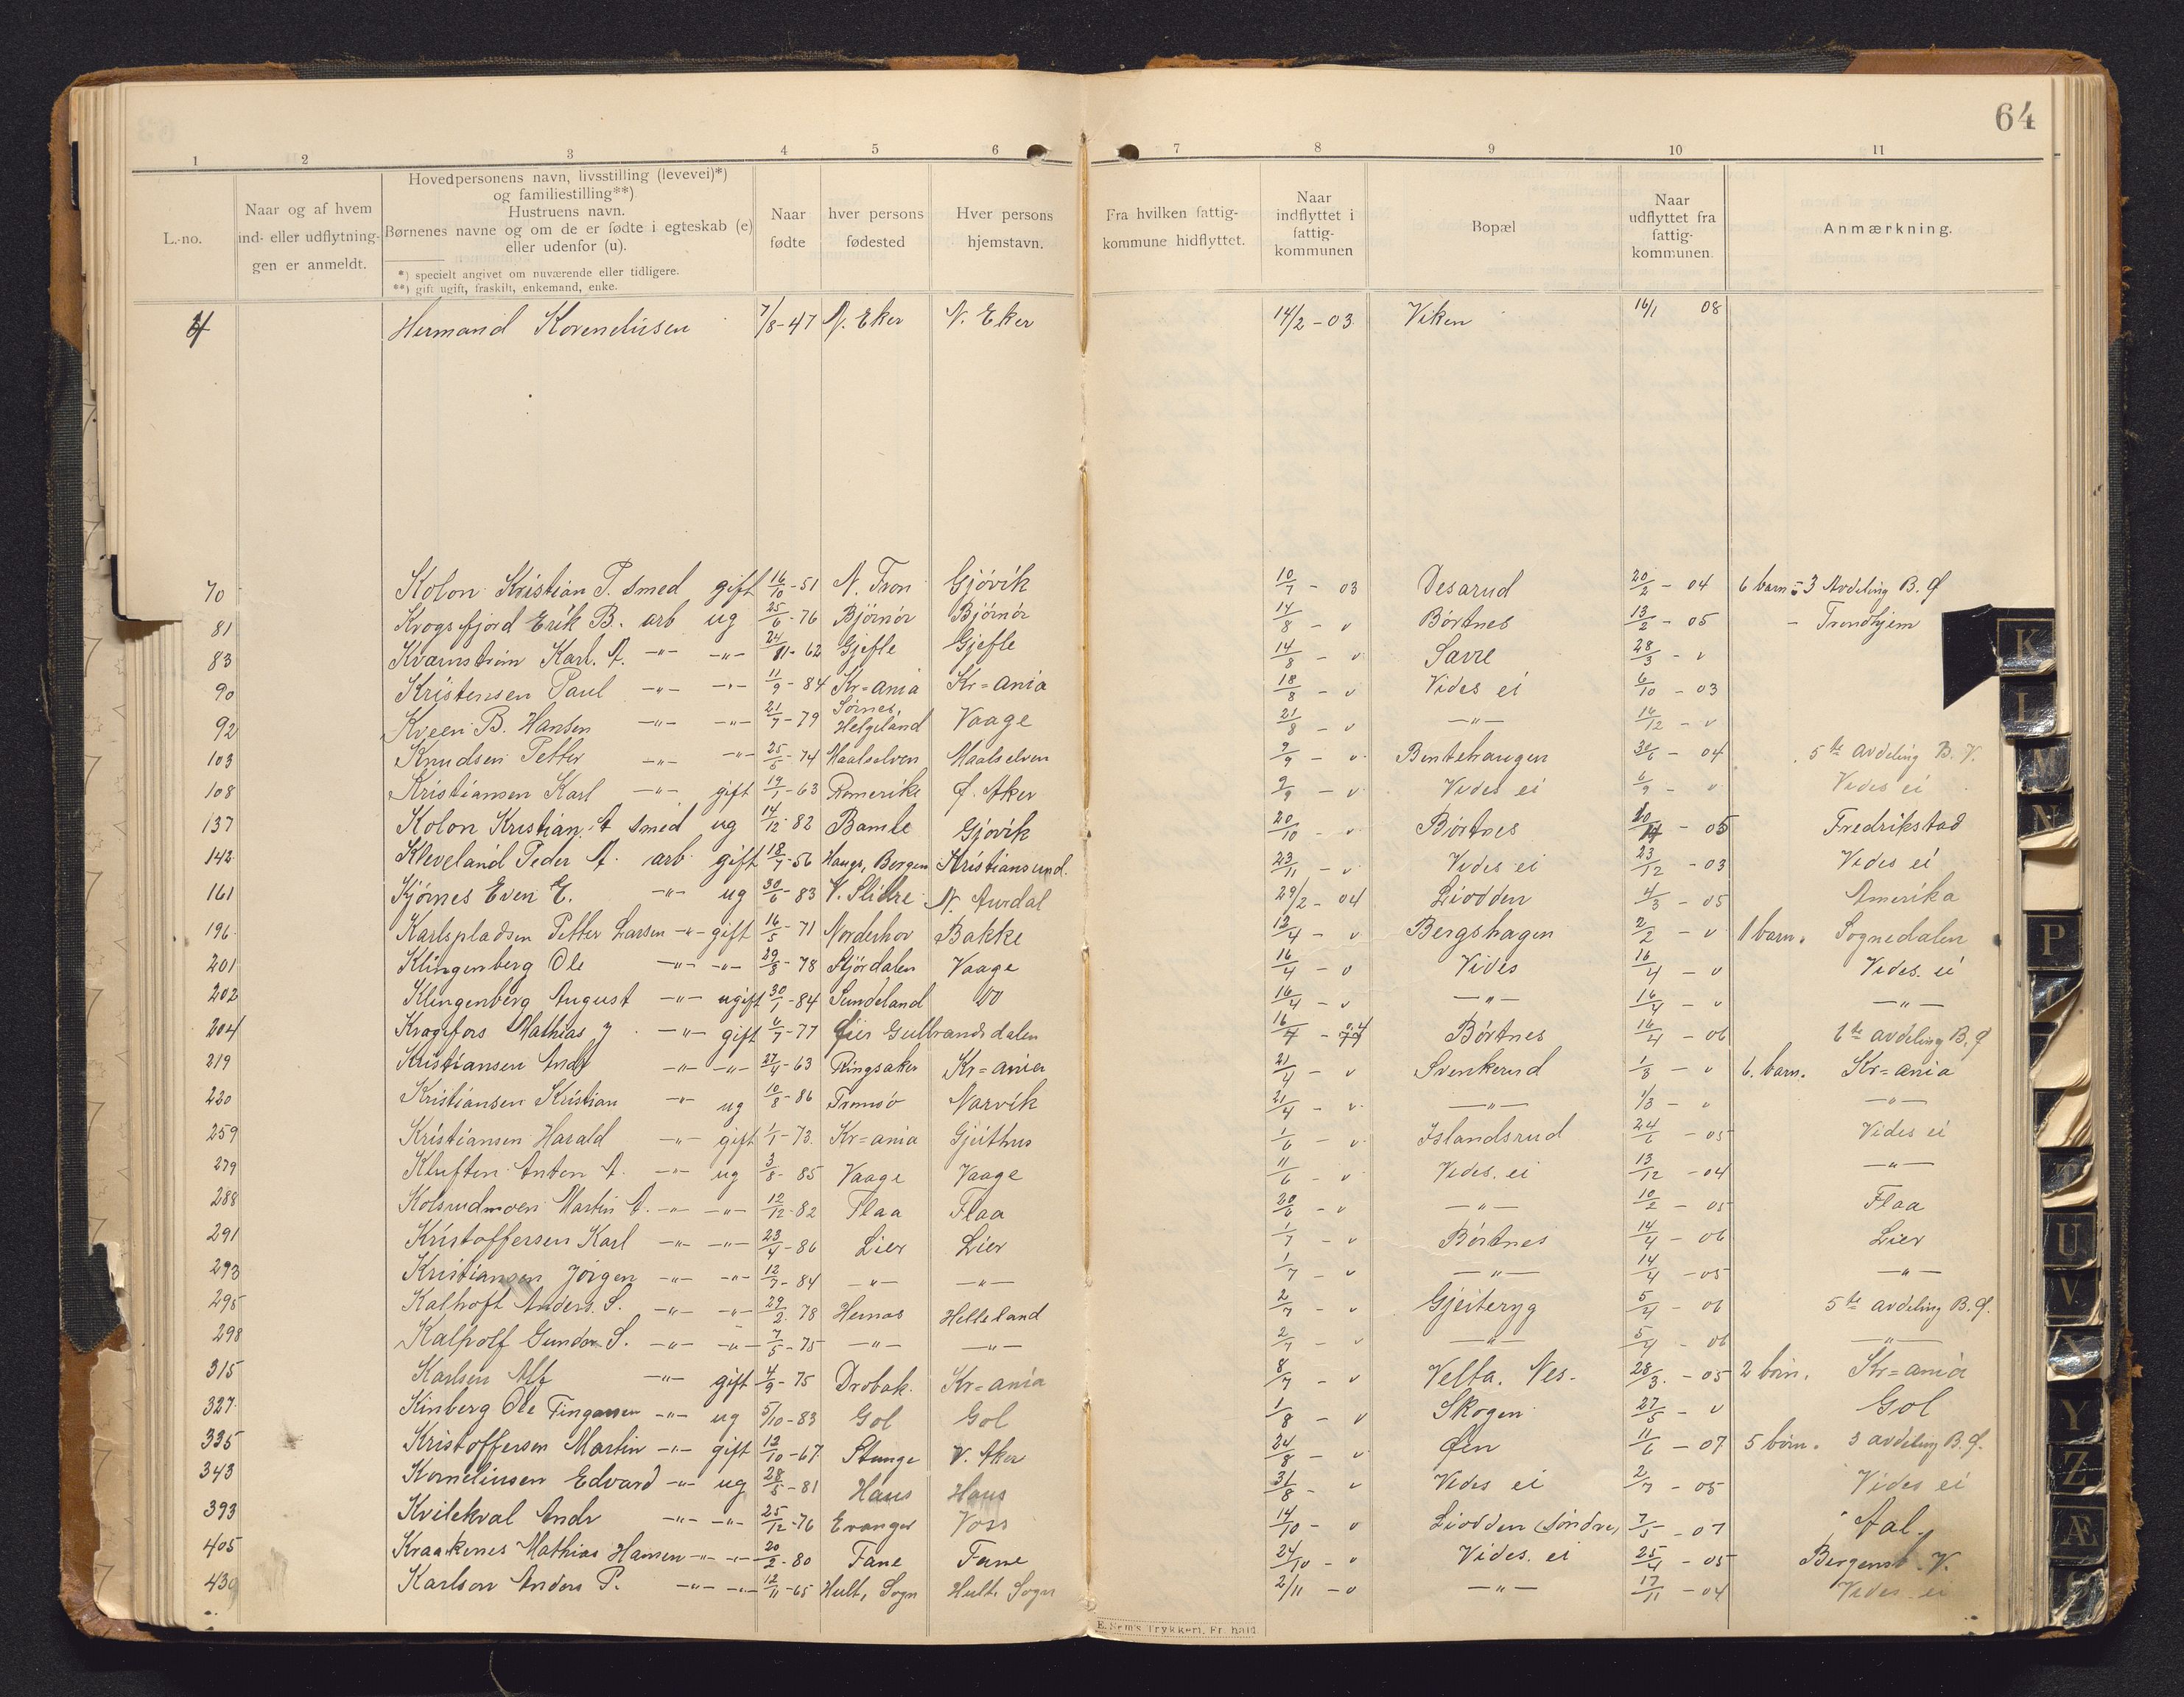 64
1 2 3 4 5 6 7 8 9 10 11
L.-no.
Naar og af hvem
ind- eller udflytning-
gen er anmeldt.
Hovedpersonens navn, livsstilling (levevei)*)
og familiestilling**)
Hustruens navn.
Børnenes navne og om de er fødte i egteskab (e)
eller udenfor (u).
*) specielt angivet om nuværende eller tidligere.
**) gift ugift, fraskilt, enkemand, enke.
Naar
fødte
hver persons
fødested
Hver persons
hjemstavn.
Fra hvilken fattig-
kommune hidflyttet.
Naar
indflyttet i
fattig-
kommunen
Bopæl
Naar
udflyttet fra
fattig-
kommunen.
Anmærkning.
4 Hermand Korneliusen 7/8-47 N. Eker N. Eker 14/2-03 Viken 16/1 08
70 Kolon Kristian P. smed gift 16/10-51 N. Fron Gjövik 10/7 - 03 Desarud 20/2 - 04 6 barn 3 Avdeling B. Ø
81 Krogsfjord Erik B. arb ug 25/6-76 Björnör Björnör 14/8 - v Börtnes 13/2 - 05 - Trondhjem
83 Kvarnström Karl. A. -"- -"- 24/11-62 Gjefle Gjefle 14/8 - v Savre 28/3 - v
90 Kristensen Paul -"- -"- 11/9-84 Kr=ania Kr=ania 18/8 - v Vides ei 6/10 - 03
92 Kveen B. Hansen -"- -"- 21/7-79 Sörnes, Helgeland Vaage 21/8 - v -"- 14/12 - v
103 Knudsen Petter -"- -"- 25/5-74 Maalselven Maalselven 9/9 - v Bentehaugen 30/6 - 04 5te avdeling B. V.
108 Kristiansen Karl -"- gift 19/1-63 Romerike Ø. Aker 9/9 - v Vides ei 6/9 - v Vides ei
137 Kolon Kristian A smed ug 14/12-82 Bamle Gjövik 20/10 - v Börtnes - 05 Fredrikstad
142 Kleveland Peder A. arb. gift 18/7-56 Haugs, Bergen Kristiansund. 23/11 - v Vides ei 23/12 - 03 Vides ei
161 Kjörnes Even E. -"- ug 30/6-83 V. Slidre N. Aurdal 29/2 - 04 Liodden 4/3 - 05 Amerika
196 Karlspladsen Petter Larsen -"- gift 16/5-71 Norderhov Bakke 12/4 - v Bergshagen 2/2 - v 1 barn. Sognedalen
201 Klingenberg Ole -"- -"- 29/8-78 Stjördalen Vaage 16/4 - v Vides 16/4 - v Vides. ei
202 Klingenberg August -"- ugift 30/1-84 Sundeland do 16/4 - v -"- 16/4 - v -"-
204 Krogsfors Mathias J. -"- gift 4/7-77 Öier Gulbrandsdalen 16/4 - 04 Börtnes 16/4 - 06 6te avdeling B. Ø
219 Kristiansen Andr -"- -"- 27/4-63 Ringsaker Kr=ania 21/4 - v Svenkerud 1/3 - v 6. barn. Kr=ania
230 Kristiansen Kristian -"- ug 10/8-86 Tromsö Narvik 21/4 - v -"- 1/3 - v -"-
259 Kristiansen Harald -"- gift 1/1-73. Kr=ania Gjeithus 1/6 - v Islandsrud 24/6 - 05 Vides ei
279 Kluften Anton A. -"- ug 3/8-85 Vaage Vaage 11/6 - v Vides. ei 13/12 - 04 -"-
288 Kolsrudmoen Martin A. -"- -"- 12/12-82 Flaa Flaa 20/6 - v -"- 10/2 - 05 Flaa
291 Kristoffersen Karl -"- -"- 23/4-86 Lier Lier 1/7 - v Börtnes 14/4 - 06 Lier
293 Kristiansen Jörgen -"- -"- 12/7-84 -"- -"- 1/7 - v -"- 14/4 - 05 -"-
295 Kalhoft Anders. S. -"- -"- 29/2.78 Hemas Helleland 2/7 - v Gjeiteryg 5/4 - 06 5te avdeling B. Ø.
298 Kalholf Gunder S. -"- -"- 7/5-75 -"- -"- 2/7 - v -"- 5/4 - 06 -"-
315 Karlsen Alf -"- gift 4/9-75 Drobak. Kr=ania 8/7 - v Velta. Nes. 28/3. - 05 2 börn. Kr=ania
327. Kinberg Ole Fingarsen -"- ug 5/10-83 Gol Gol 1/8 - v Skogen 27/5 - v Gol
335 Kristoffersen Martin -"- gift 12/10-67. Stange V. Aker 24/8 - v Öen 11/6 - 07 5 börn. 3 avdeling B. Ø.
343 Korneliusen Edvard -"- ug 28/5-81 Haus Haus 31/8 - v Vides ei 2/7 - 05 Vides ei
393 Kvilekval Andr -"- -"- 25/12-76 Evanger Voss 14/10 - v Liodden (Söndre) 7/5 - 07 Aal.
405 Kraakenes Mathias Hansen -"- -"- 20/2-80 Fane Fane 24/10 - v Vides. ei 25/4 - 05 Bergenst. V.
439 Karlson Anders P. -"- -"- 12/11-65 Hult, Sogn Hult. Sogn 2/11 - v -"- 17/11 - 04 Vides ei
E. Sem's Trykkeri, Fr. hald.
K
L
M
N
P
T
U
V
X
Y
Z
Æ